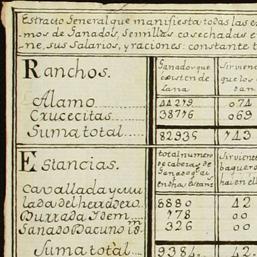 Estracto General que manifiesta todas las es
mos de Ganados, Semillas cosechadas e
ne, sus Salarios, y raciones: constante t
Ranchos. Ganados que existen de Lana Sirviente que los dan
Alamo 44279 074
Crucecitas 38776 069
Suma total 82935 143
Estancias. total numero de cabezas de Ganado qe. ai en dhas Estans. Sirviente baquero hai en ell
Cavallada y mu
lada del herradero 8880 42
Burrada Idem 178 00
Ganado Bacuno id 326 00
Suma total 9384 42